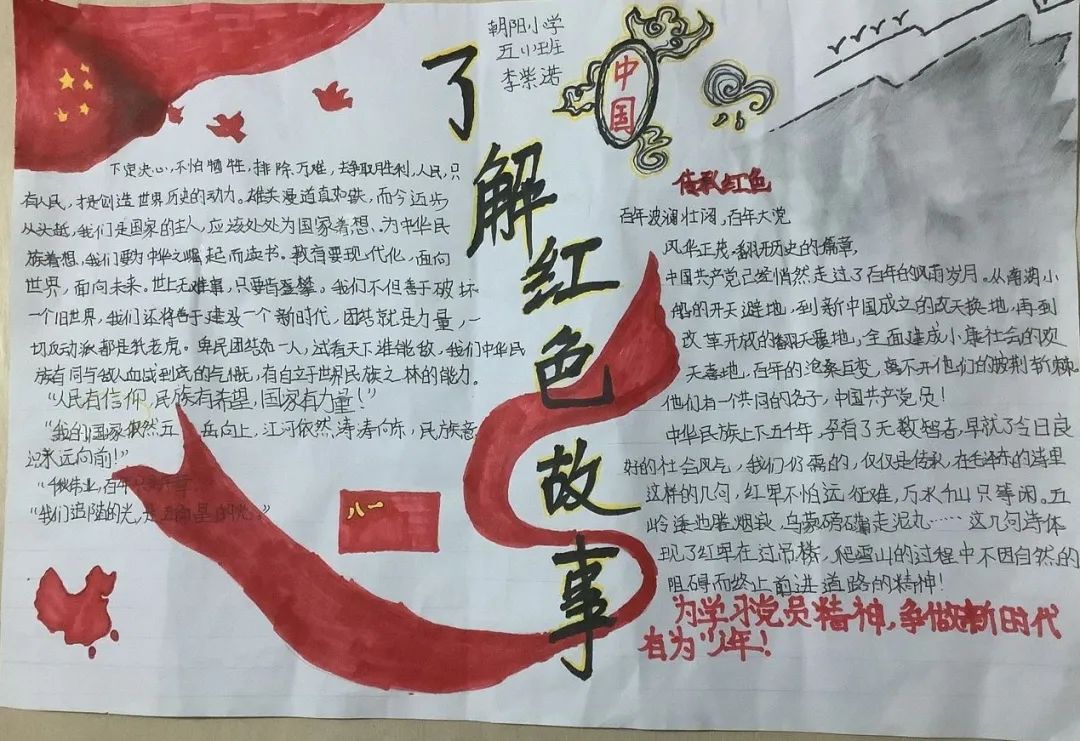 朝阳小学
五(1)班
李紫诺
中国
了解红色故事
下定决心,不怕牺牲,排除万难,去争取胜利,人民,只
有人民,才是创造世界历史的动力。雄关漫道真如铁,而今迈步
从头越,我们是国家的主人,应该处处为国家着想、为中华民
族着想,我们要为中华之崛起而读书。教育要现代化,面向
世界,面向未来。世上无难事,只要肯登攀。我们不但善于破坏
一个旧世界,我们还将善于建设一个新时代,团结就是力量,一
切反动派都是纸老虎。军民团结如一人,试看天下谁能敌,我们中华民
族有同与敌人血战到底的气慨,有自立于世界民族之林的能力。
“人民有信仰,民族有希望,国家有力量!”
“我的国家依然五岳向上,江河依然涛涛向东,民族意
永远向前!”
“千秋伟业,百年只
“我们追随的光,是五角星的光。”
八一
传承红色
百年波澜壮阔,百年大党
风华正茂,翻开历史的篇章,
中国共产党已经悄然走过了百年的风雨岁月。从南湖小
船的开天避地,到新中国成立的改天换地,再到
改革开放的翻天覆地,全面建成小康社会的欢
天喜地,百年的沧桑巨变,离不开他们的披荆斩棘。
他们有一个共同的名子,中国共产党员!
中华民族上下五千年,孕育了无数智者,早就了今日良
好的社会风气,我们仍需的,仅仅是传承,在毛泽东的诗里
这样的几句,红军不怕远征难,万水千山只等闲。五
岭逶迤腾细浪,乌蒙磅礴走泥丸……这几句诗体
现了红军在过吊楼,爬雪山的过程中不因自然的
阻碍而终止前进道路的精神!
为学习党员精神,争做新时代
有为少年!